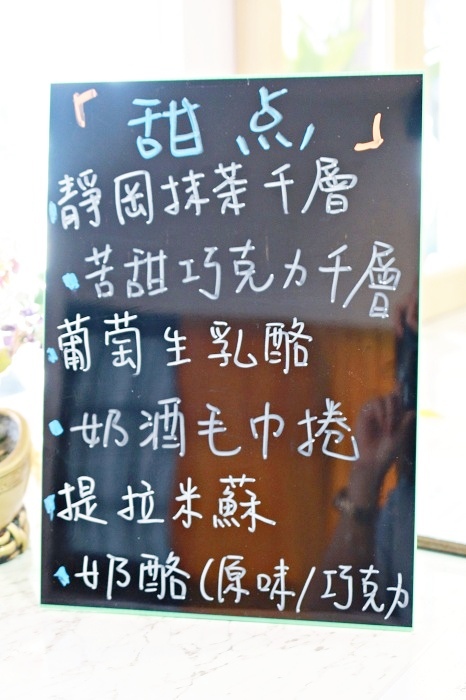 「甜点」
靜岡抹茶千層
苦甜巧克力千層
葡萄生乳酪
奶酒毛巾捲
提拉米蘇
奶酪(原味/巧克力